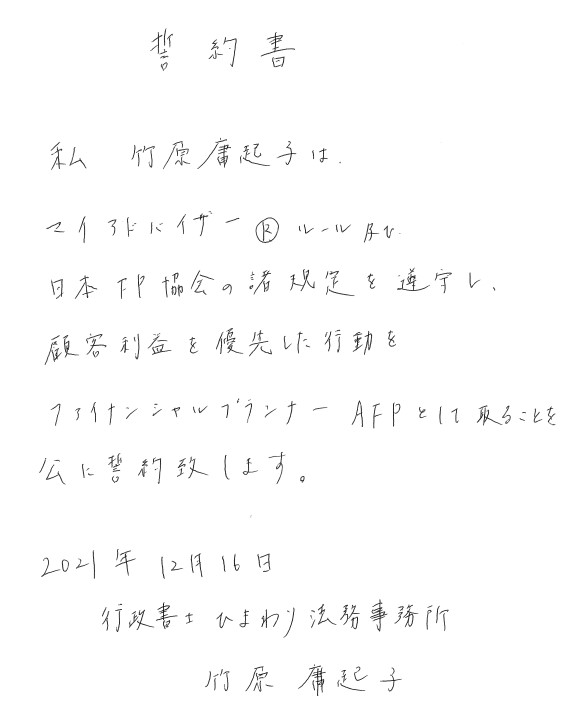 誓約書
私 竹原庸起子は、
マイアドバイザー®ルール及び
日本FP協会の諸規定を遵守し、
顧客利益を優先した行動を
ファイナンシャルプランナーAFPとして取ることを
公に誓約致します。
2021年12月16日
行政書士ひまわり法務事務所
竹原 庸起子